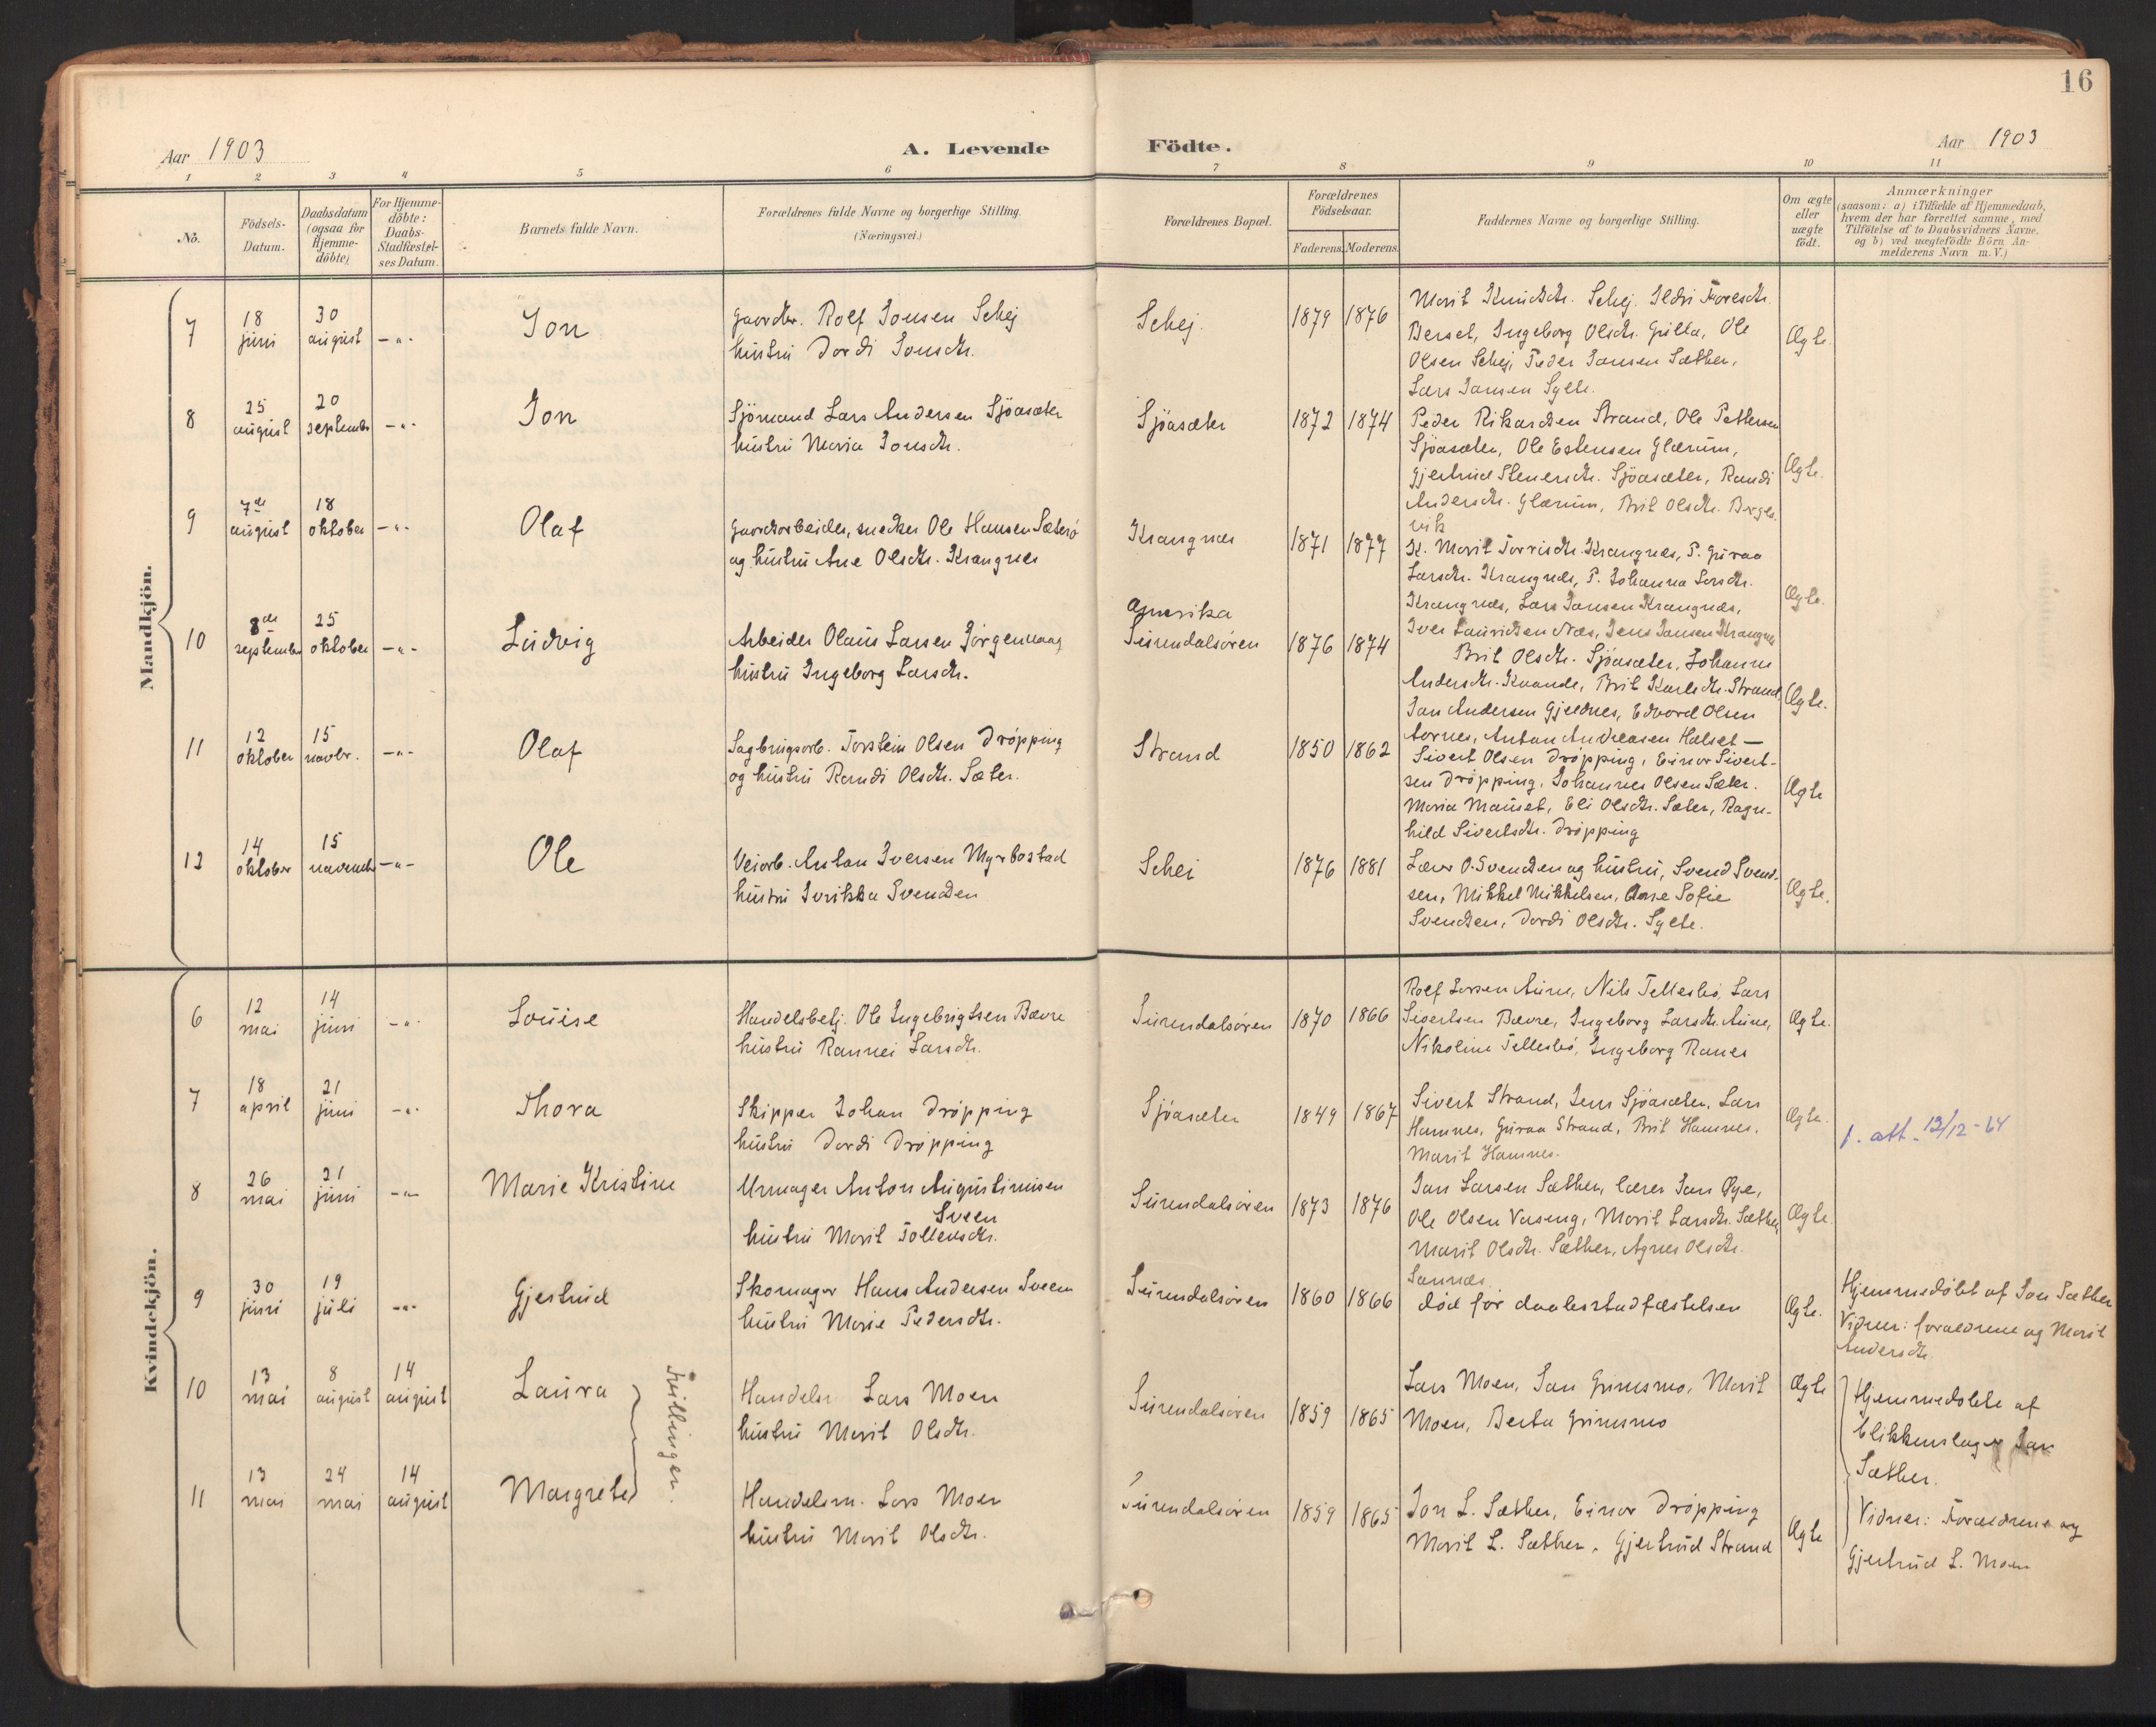 16
Aar 1903
A. Levende Födte.
Aar 1903
1 2 3 4 5 6 7 8 9 10 11
No.
Födsels-Datum.
Daabsdatum (ogsaa for Hjemme-döbte)
For Hjemme-döbte: Daabs-Stadfæstel-ses Datum.
Barnets fulde Navn.
Forældrenes fulde Navne og borgerlige Stilling. (Næringsvei.)
Forældrenes Bopæl.
Forældrenes Födselsaar.
Faderens. Moderens.
Faddernes Navne og borgerlige Stilling.
Om ægte eller uægte födt.
Anmærkninger
(saasom: a) i Tilfælde af Hjemmedaab,
hvem der har forrettet samme, med
Tilföielse af to Daabsvidners Navne.
og b) ved uægtefödte Börn An-
melderens Navn m. V.)
Mandkjön.
7 18 juni 30 august -"- Jon
Gaardbr. Rolf Jonsen Schej
hustru Dordi Jonsdtr.
Schej. 1879 1876
Marit Knudsdtr. Schej. Ildri Toresdtr.
Berset, Ingeborg Olsdtr. Grilla, Ole
Olsen Schej, Peder Jonsen Sæther,
Lars Jonsen Sylte.
Ægte.
8 25 august 20 septembr -"- Jon
Sjömand Lars Andersen Sjöasæter
hustru Maria Jonsdtr.
Sjöasæter 1872 1874
Peder Rikardsen Strand, Ole Pettersen
Sjöasæter, Ole Estensen Glærum,
Gjertrud Stenersdtr. Sjöasæter, Randi
Andersdtr. Glærum, Brit Olsdtr. Bergs-
vik
Ægte.
9 7de august 18 oktober -"- Olaf
Gaardarbeider, snedker Ole Hansen Sæterö
og hustru Ane Olsdtr. Krangnes
Krangnæs 1871 1877
K. Marit Torrisdtr. Krangnæs, P. Guraa
Larsdtr. Krangnæs, P. Johanna Larsdtr.
Krangnæs, Lars Jonsen Krangnæs,
Iver Lauridsen Næs, Jens Jonsen Krangnæs
Ægte.
10 8de september 25 oktober -"- Ludvig
Arbeider Olaus Larsen Jörgenvaag
hustru Ingeborg Larsdtr.
Amerika
Surendalsören 1876 1874
Brit Olsdtr. Sjöasæter, Johanne
Andersdtr. Kvande, Brit Karlsdtr. Strand
Jon Andersen Gjeldnes, Edvard Olsen
Aarnes, Anton Andreasen Halset —
Ægte.
11 12 oktober 15 novbr. -"- Olaf
Sagbrugsarb. Torstein Olsen Dröpping
og hustru Randi Olsdtr. Sæter.
Strand 1850 1862
Sivert Olsen Dröpping, Einar Sivert-
sen Dröpping, Johannes Olsen Sæter.
Maria Mauset, Eli Olsdtr. Sæter, Ragn-
hild Sivertsdtr. Dröpping
Ægte
12 14 oktober 15 november -"- Ole
Veiarb. Anton Iversen Myrbostad
hustru Jorikka Svendsen
Schei 1876 1881
Lærer O. Svendsen og hustru, Svend Svend-
sen, Mikkel Mikkelsen, Anne Sofie
Svendsen, Dordi Olsdtr. Sylte.
Ægte.
Kvindekjön.
6 12 mai 14 juni -"- Louise
Handelsbetj. Ole Ingebrigtsen Bævre
hustru Rannei Larsdtr.
Surendalsören 1870 1866
Rolf Larsen Aune, Nils Tellesbö, Lars
Sivertsen Bævre, Ingeborg Larsdtr. Aune,
Nikoline Tellesbö, Ingeborg Ranes
Ægte.
7 18 april 21 juni -"- Thora
Skipper Johan Dröpping
hustru Dordi Dröpping
Sjöasæter 1849 1867
Sivert Strand, Jens Sjöasæter, Lars
Hamnes, Guraa Strand, Brit Hamnes.
Marit Hamnes.
Ægte.
f. att. 12/12-64
8 26 mai 21 juni -"- Marie Kristine
Urmager Anton Augustinusen
Sveen
hustru Marit Tollevsdtr.
Surendalsören 1873 1876
Jon Larsen Sæther, lærer Jon Øye,
Ole Olsen Vaseng, Marit Larsdtr. Sæther,
Marit Olsdtr. Sæther, Agnes Olsdtr.
Sannæs.
Ægte.
9 30 juni 19 juli -"- Gjertrud
Skomager Hans Andersen Sveen
hustru Marie Pedersdtr.
Surendalsören 1860 1866
död för daabsstadfæstelsen
Ægte.
Hjemmedöbt af Jon Sæther
Vidner: forældrene og Marit
Andersdtr.
10 13 mai 8 august 14 august Laura
Tvillinger.
Handelsm. Lars Moen
hustru Marit Olsdtr.
Surendalsören 1859 1865
Lars Moen, Jon Grimsmo, Marit
Moen, Berta Grimsmo
Ægte
Hjemmedöbte af
blikkenslager Jon
Sæther.
11 13 mai 24 mai 14 august Margrete
Handelsm. Lars Moen
hustru Marit Olsdtr.
Surendalsören 1859 1865
Jon L. Sæther, Einar Dröpping
Marit L. Sæther, Gjertrud Strand
Ægte
Vidner: Forældrene og
Gjertrud L. Moen